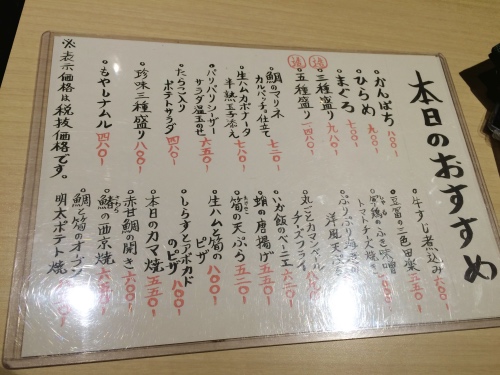 本日のおすすめ
かんぱち 八〇〇-
ひらめ 九〇〇-
まぐろ 七〇〇-
三種盛り 九八〇-
五種盛り 一四八〇-
鯛のマリネ
カルパッチョ仕立て 七二〇-
生ハムカポナータ
半熟玉子添え 七八〇-
パリパリシーザー
サラダ温玉のせ 六五〇-
たらこ入り
ポテトサラダ 四八〇-
珍味三種盛り 八〇〇-
もやしナムル 四八〇-
牛すじ煮込み 六〇〇-
豆富の二色田楽 三五〇-
ふき味噌
トマトチーズ焼き
丸ごとカマンベール
チーズフライ
いか飯のベーニエ 六二〇-
蛸の唐揚げ 五五〇-
筍の天ぷら 五二〇-
生ハムと筍の
ピザ 八〇〇-
しらすとアボカド
のピザ 八〇〇-
本日のカマ焼 五五〇-
赤甘鯛の開き 六〇〇-
鰆の西京焼
鯛と筍のオーブン
明太ポテト焼
※表示価格は税抜価格です。